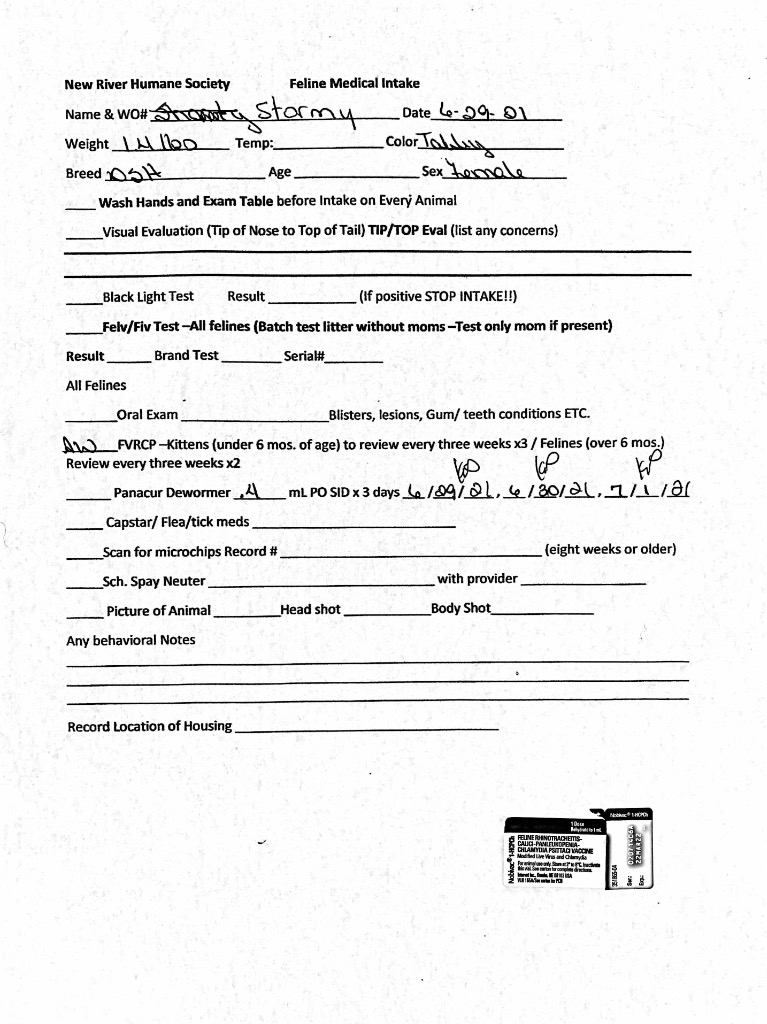 New River Humane Society Feline Medical Intake
Name & WO# Stormy Date 6-29-21
Weight Temp: Color Tabby
Breed DSH Age Sex Female
Wash Hands and Exam Table before Intake on Every Animal
Visual Evaluation (Tip of Nose to Top of Tail) TIP/TOP Eval (list any concerns)
Black Light Test Result (If positive STOP INTAKE!!)
Felv/Fiv Test –All felines (Batch test litter without moms –Test only mom if present)
Result Brand Test Serial#
All Felines
Oral Exam Blisters, lesions, Gum/ teeth conditions ETC.
AW FVRCP –Kittens (under 6 mos. of age) to review every three weeks x3 / Felines (over 6 mos.)
Review every three weeks x2
Panacur Dewormer .4 mL PO SID x 3 days 6/29/21, 6/30/21, 7/1/21
Capstar/ Flea/tick meds
Scan for microchips Record # (eight weeks or older)
Sch. Spay Neuter with provider
Picture of Animal Head shot Body Shot
Any behavioral Notes
Record Location of Housing
Nobivac® 1-HCPCh
1 Dose
Rehydrate to 1 mL
FELINE RHINOTRACHEITIS-
CALICI-PANLEUKOPENIA-
CHLAMYDIA PSITTACI VACCINE
Modified Live Virus and Chlamydia
For animal use only. Store at 2° to 8°C. Inactivate
this vial. See carton for complete directions.
Intervet Inc., Omaha, NE 68103 USA
Nobivac® 1-HCPCh
Ser:
Exp.: 22MAR22